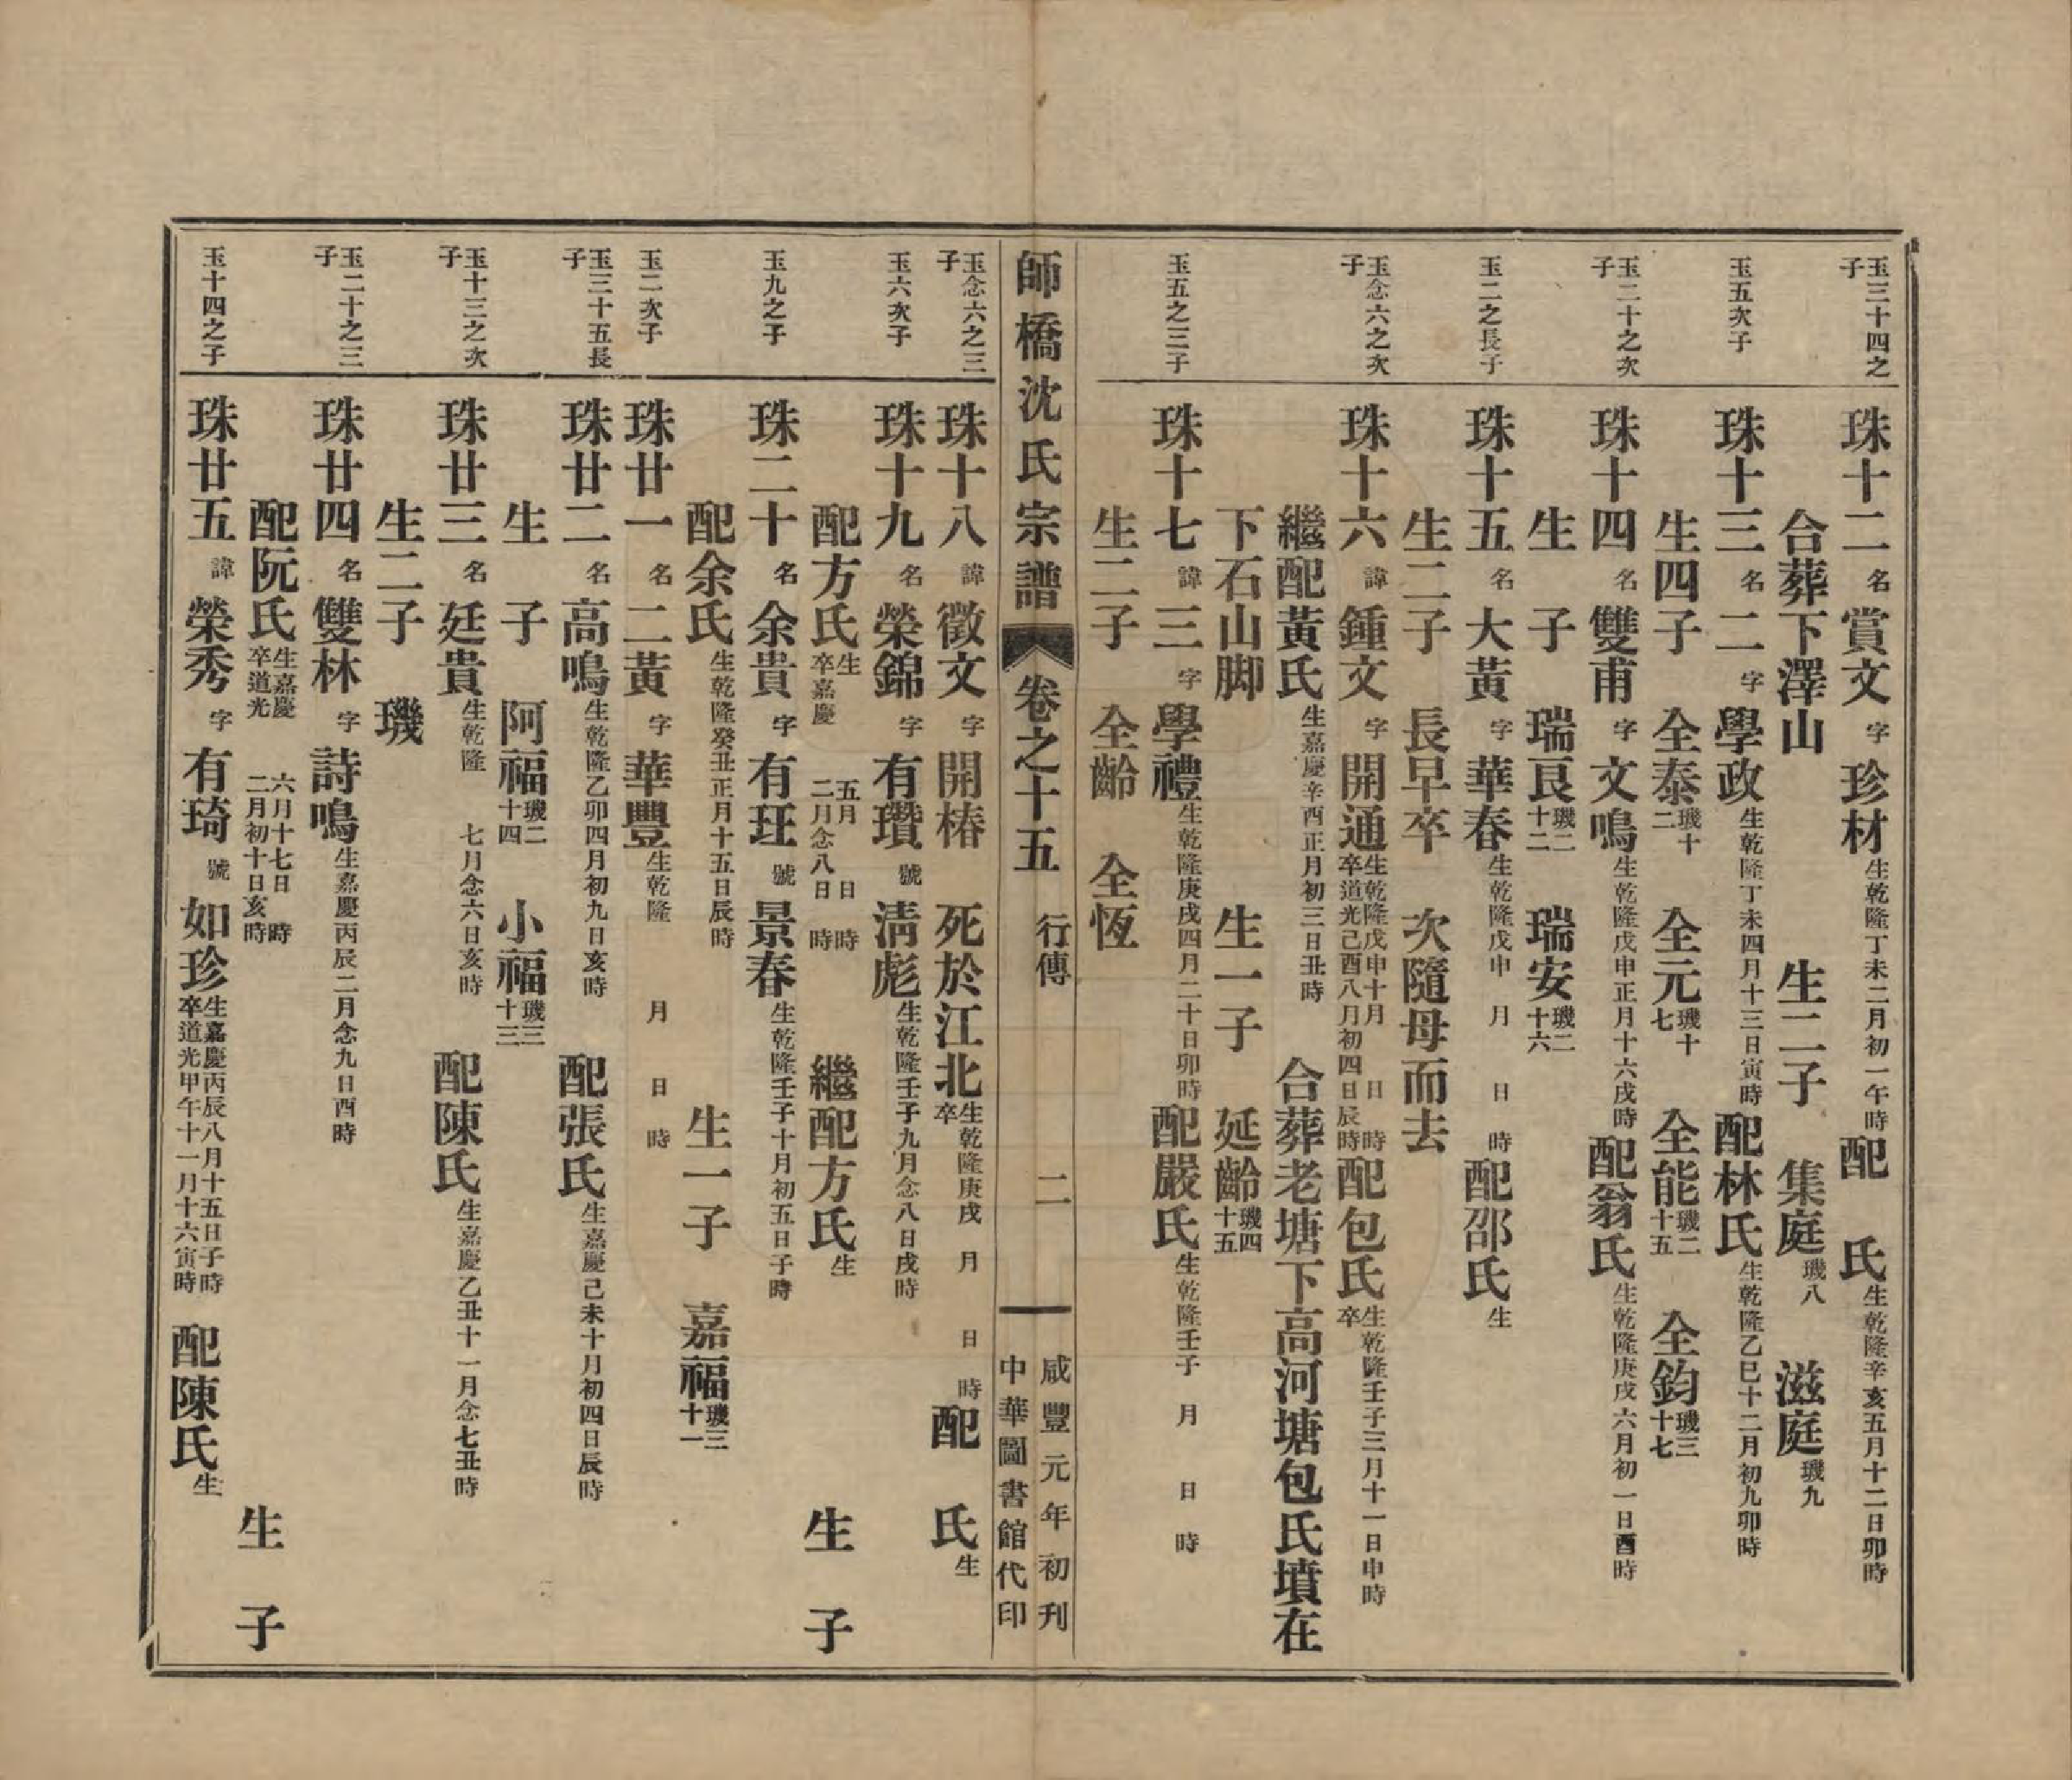 玉三十四之子
珠十二 名 賞文 字 珍材 生乾隆丁未二月初一午時 配 氏 生乾隆辛亥五月十二日卯時
合葬下澤山 生二子 集庭 璣八 滋庭 璣九
玉五次子
珠十三 名 二 字 學政 生乾隆丁未四月十三日寅時 配林氏 生乾隆乙巳十二月初九卯時
生四子 全泰 璣十二 全元 璣十七 全能 璣二十五 全鈞 璣三十七
玉二十之次子
珠十四 名 雙甫 字 文鳴 生乾隆戊申正月十六戌時 配翁氏 生乾隆庚戌六月初一日酉時
生 子 瑞良 璣二十二 瑞安 璣二十六
玉二之長子
珠十五 名 大黃 字 華春 生乾隆戊申 月 日 時 配邵氏 生
生二子 長早卒 次隨母而去
玉念六之次子
珠十六 諱 鍾文 字 開通 生乾隆戊申十月 日 時 卒道光己酉八月初四日辰時 配包氏 生乾隆壬子三月十一日申時 卒
繼配黃氏 生嘉慶辛酉正月初三日丑時 合葬老塘下高河塘包氏墳在
下石山脚 生一子 延齡 璣四十五
玉五之三子
珠十七 諱 三 字 學禮 生乾隆庚戌四月二十日卯時 配嚴氏 生乾隆壬子 月 日 時
生二子 全齡 全恆
師橋沈氏宗譜 卷之十五 行傳 二 咸豐元年初刊 中華圖書館代印
玉念六之三子
珠十八 諱 徵文 字 開椿 死於江北 生乾隆庚戌 月 日 時 卒 配 氏 生
玉六次子
珠十九 名 榮錦 字 有瓚 號 淸彪 生乾隆壬子九月念八日戌時
配方氏 生 五月 日 時 卒嘉慶 二月念八日 時 繼配方氏 生 生 子
玉九之子
珠二十 名 余貴 字 有玨 號 景春 生乾隆壬子十月初五日子時
配余氏 生乾隆癸丑正月十五日辰時 生一子 嘉福 璣三十一
玉二次子
珠廿一 名 二黃 字 華豐 生乾隆 月 日 時
玉三十五長子
珠廿二 名 高鳴 生乾隆乙卯四月初九日亥時 配張氏 生嘉慶己未十月初四日辰時
生 子 阿福 璣二十四 小福 璣三十三
玉十三之次子
珠廿三 名 廷貴 生乾隆 七月念六日亥時 配陳氏 生嘉慶乙丑十一月念七丑時
生二子 璣
玉二十之三子
珠廿四 名 雙林 字 詩鳴 生嘉慶丙辰二月念九日酉時
配阮氏 生嘉慶 六月十七日 時 卒道光 二月初十日亥時 生 子
玉十四之子
珠廿五 諱 榮秀 字 有琦 號 如珍 生嘉慶丙辰八月十五日子時 卒道光甲午十一月十六寅時 配陳氏 生